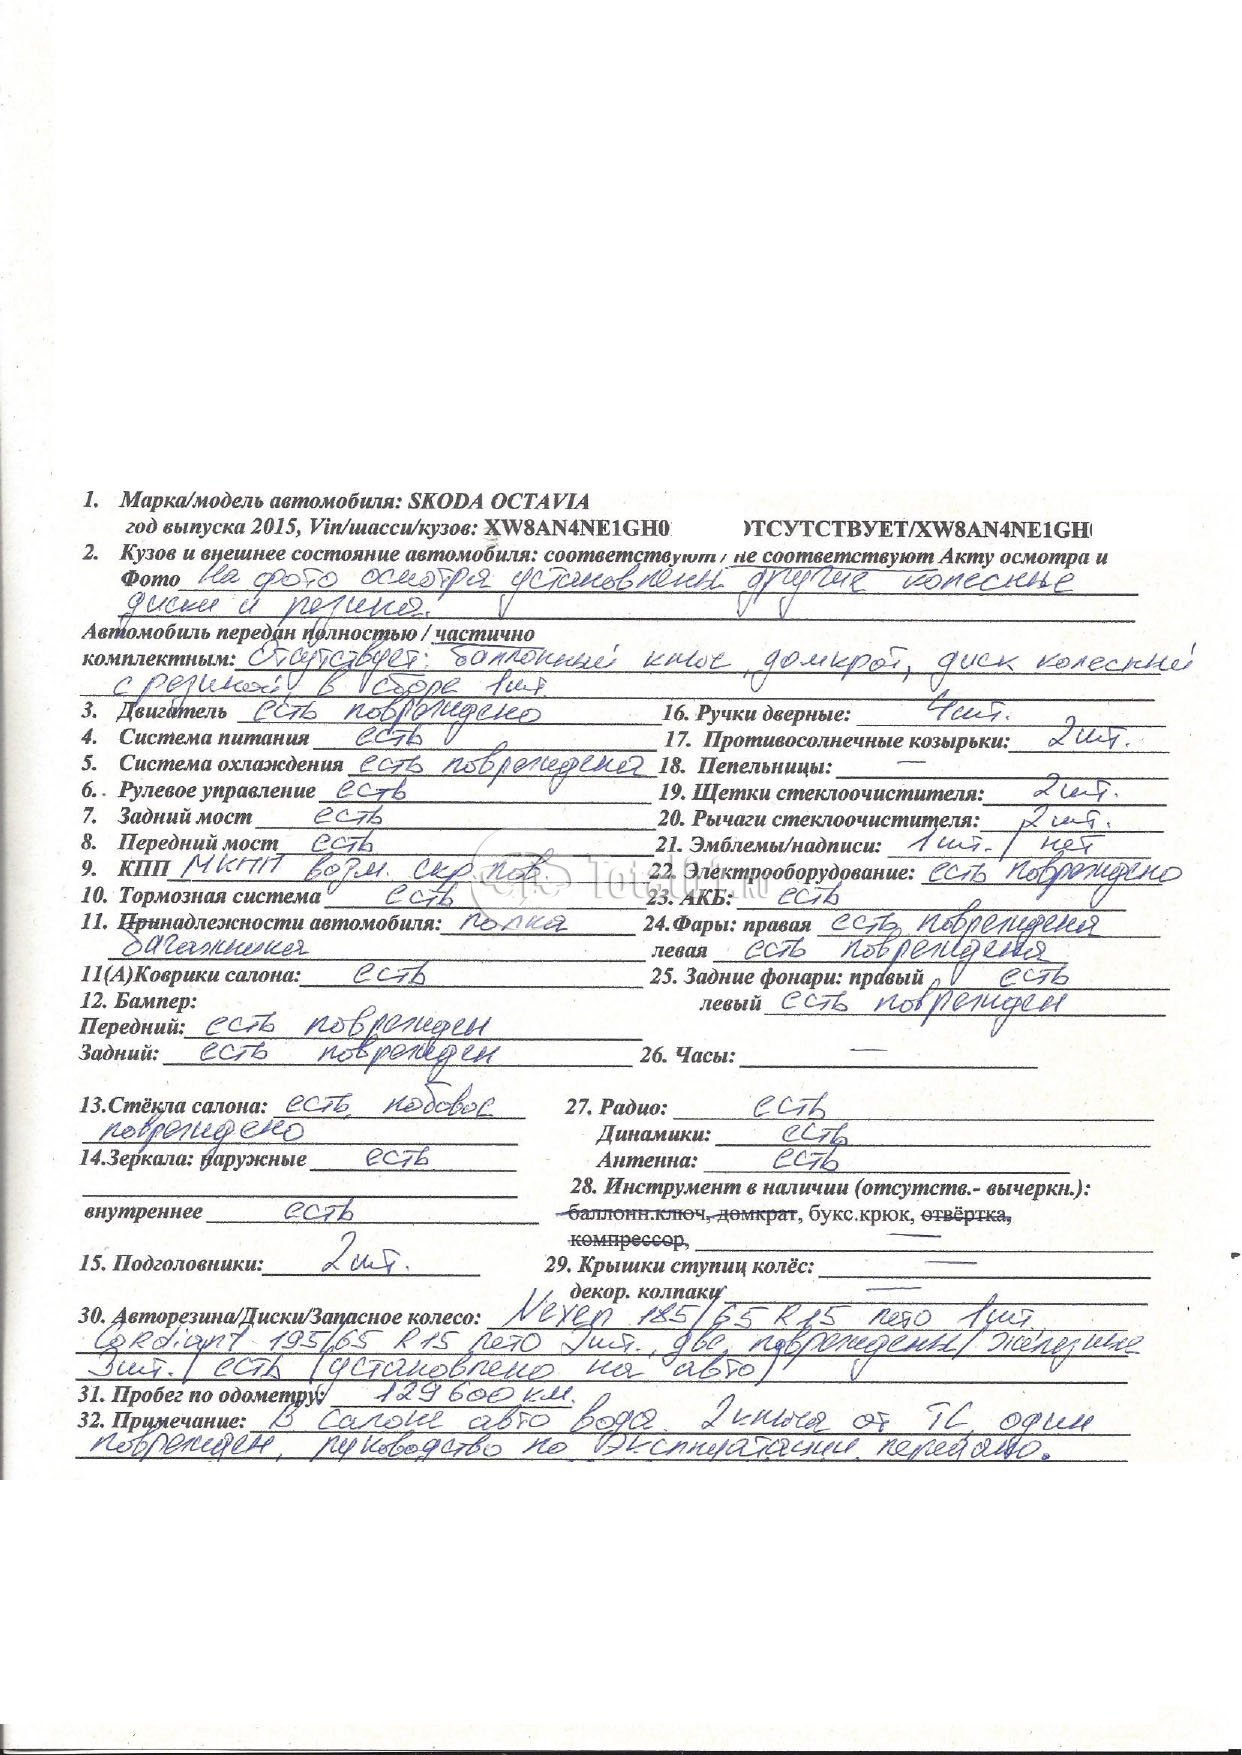 1. Марка/модель автомобиля: SKODA OCTAVIA
год выпуска 2015, Vin/шасси/кузов: XW8AN4NE1GH0 ОТСУТСТВУЕТ/XW8AN4NE1GH
2. Кузов и внешнее состояние автомобиля: соответствуют / не соответствуют Акту осмотра и
Фото На фото осмотра установлены другие колесные
диски и резина.
Автомобиль передан полностью / частично
комплектным: Отсутствует: баллонный ключ, домкрат, диск колесный
с резиной в сборе 1шт.
3. Двигатель есть повреждено 16. Ручки дверные: 4шт.
4. Система питания есть 17. Противосолнечные козырьки: 2шт.
5. Система охлаждения есть повреждена 18. Пепельницы: —
6. Рулевое управление есть 19. Щетки стеклоочистителя: 2шт.
7. Задний мост есть 20. Рычаги стеклоочистителя: 2шт.
8. Передний мост есть 21. Эмблемы/надписи: 1шт. / нет
9. КПП МКПП возм. скр. пов 22. Электрооборудование: есть повреждено
TotalUt.RU
10. Тормозная система есть 23. АКБ: есть
11. Принадлежности автомобиля: полка 24.Фары: правая есть повреждена
багажника левая есть повреждена
11(А)Коврики салона: есть 25. Задние фонари: правый есть
12. Бампер: левый есть поврежден
Передний: есть поврежден
Задний: есть поврежден 26. Часы: —
13.Стёкла салона: есть, лобовое 27. Радио: есть
повреждено Динамики: есть
14.Зеркала: наружные есть Антенна: есть
28. Инструмент в наличии (отсутств.- вычеркн.):
внутреннее есть баллонн.ключ, домкрат, букс.крюк, отвёртка,
компрессор, —
15. Подголовники: 2шт. 29. Крышки ступиц колёс: —
декор. колпаки —
30. Авторезина/Диски/Запасное колесо: Nexen 185/65 R15 лето 1шт.
Cordiant 195/65 R15 лето 2шт., две повреждены/ железные
3шт. / есть (установлено на авто)
31. Пробег по одометру: 129600км.
32. Примечание: В салоне авто вода. 2 ключа от ТС, один
поврежден, руководство по эксплуатации передано.